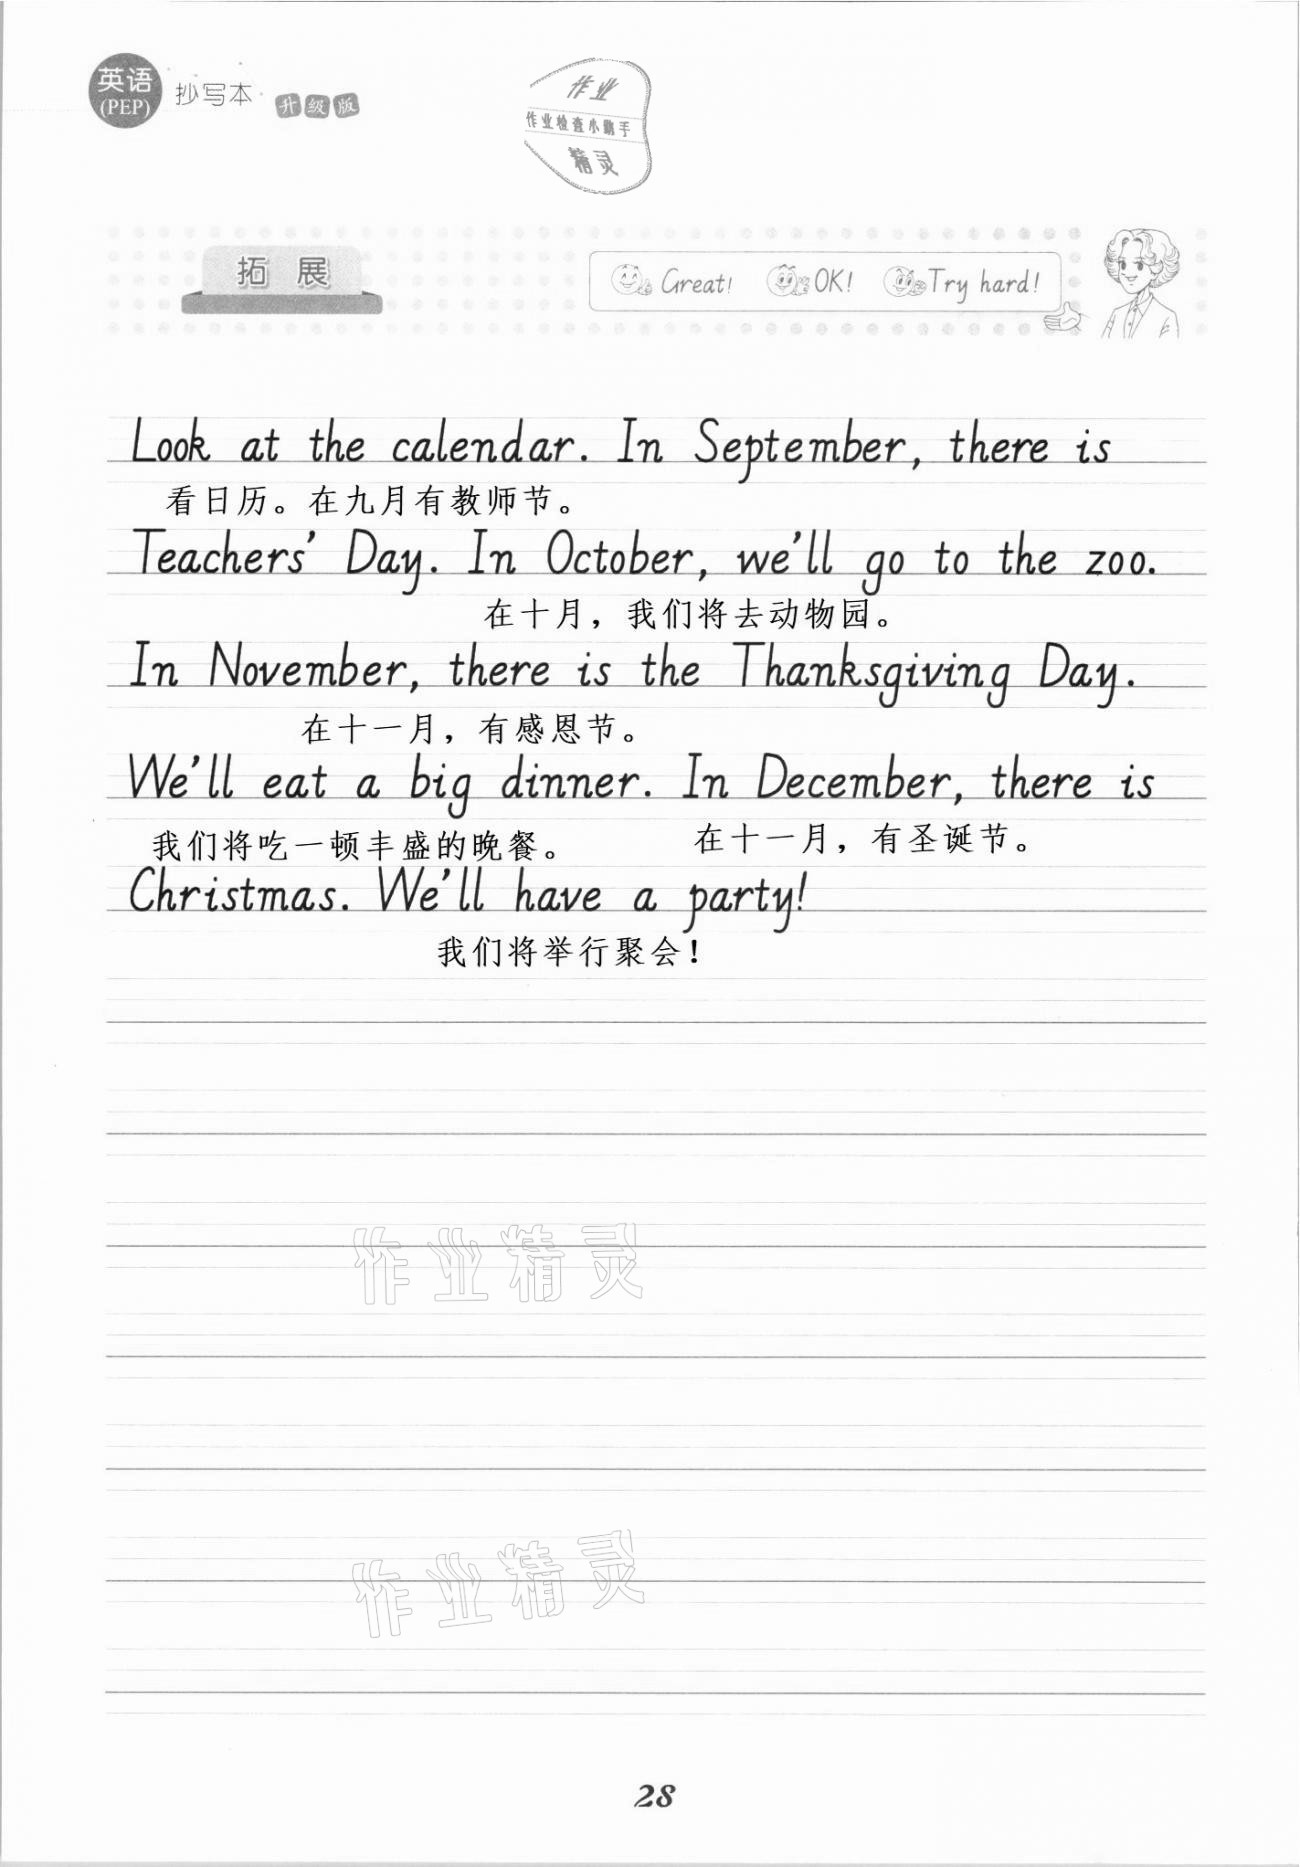 英语
(PEP)
抄写本
升级版
作业
作业检查小助手
精灵
拓展
Great! OK! Try hard!
Look at the calendar. In September, there is
看日历。在九月有教师节。
Teachers' Day. In October, we'll go to the zoo.
在十月，我们将去动物园。
In November, there is the Thanksgiving Day.
在十一月，有感恩节。
We'll eat a big dinner. In December, there is
我们将吃一顿丰盛的晚餐。 在十一月，有圣诞节。
Christmas. We'll have a party!
我们将举行聚会！
作业精灵
作业精灵
28